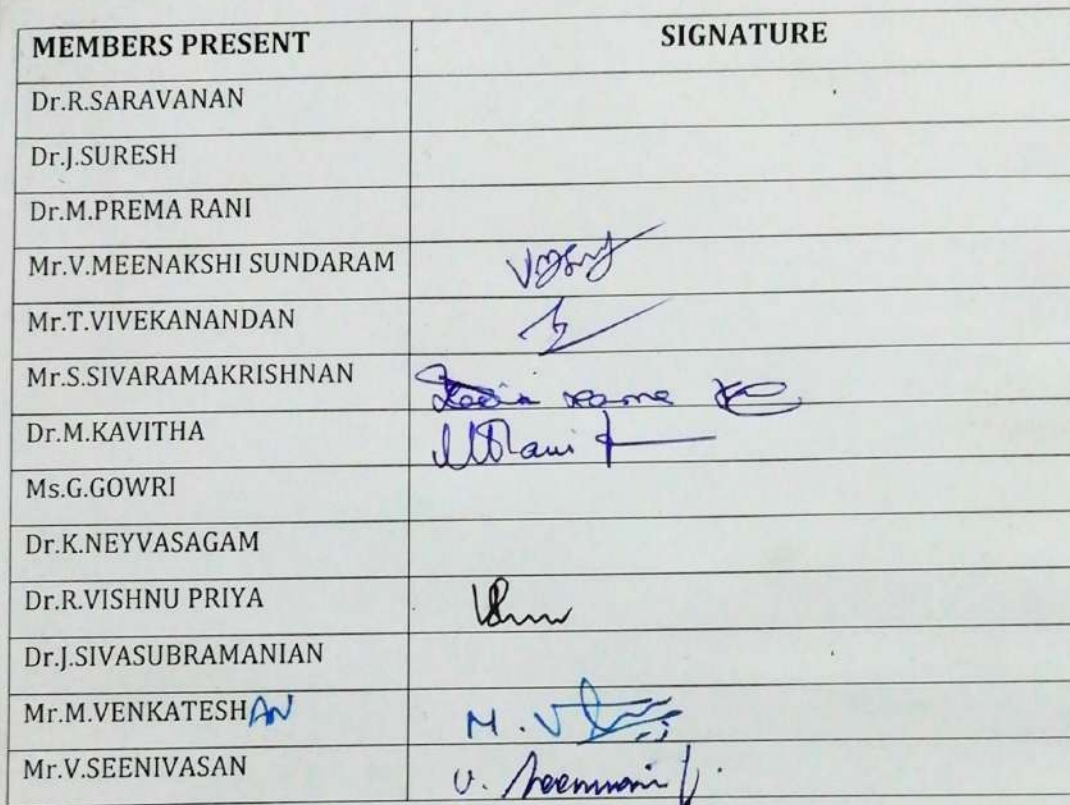 MEMBERS PRESENT SIGNATURE
Dr.R.SARAVANAN
Dr.J.SURESH
Dr.M.PREMA RANI
Mr.V.MEENAKSHI SUNDARAM
Mr.T.VIVEKANANDAN
Mr.S.SIVARAMAKRISHNAN
Dr.M.KAVITHA
Ms.G.GOWRI
Dr.K.NEYVASAGAM
Dr.R.VISHNU PRIYA
Dr.J.SIVASUBRAMANIAN
Mr.M.VENKATESHAN M. V
Mr.V.SEENIVASAN V.